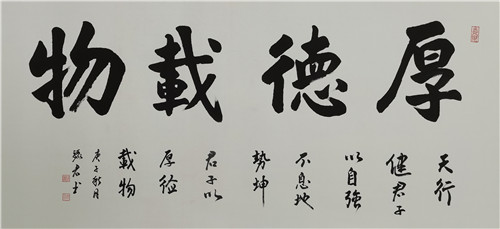 厚德載物
天行
健君子
以自強
不息地
勢坤
君子以
厚德
載物
庚子秋月